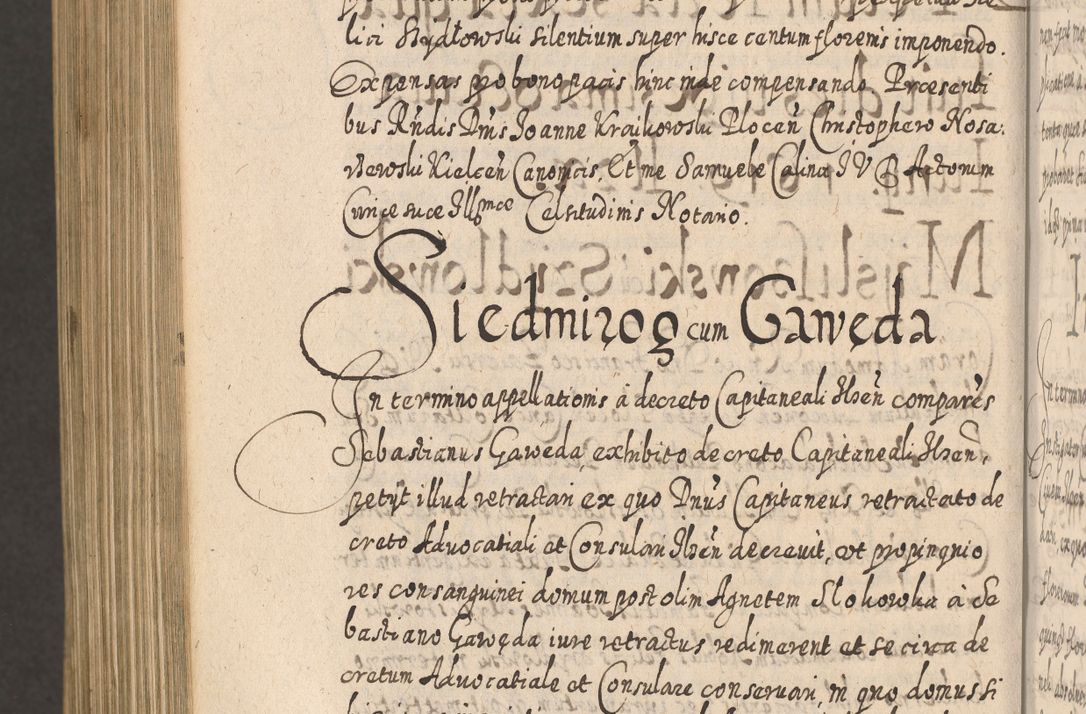 lici Szydłowski silentium super hisce centum florenis imponendo.
Expensas pro bono pacis hinc inde compensando Præsenti
bus Rñdis Dnis Joanne Kraikowski Plocen̄ Christophero Nosa.
rzewski Kielcen̄ Canonicis, Et me Samuele Calina J V D Actorum
Curiæ suæ Illmæ Celsitudinis Notario.
Siedmirog cum Gawęda
In termino appellationis à decreto Capitaneali Ilzen̄ comparēs
Sebastianus Gawęda, exhibito decreto Capitaneali Ilzen̄,
petijt illud retractari ex quo Dnus Capitaneus retractato de
creto Advocatiali et Consulari Ilzen̄ decrevit, vt propinquio
res consanguinei domum post olim Agnetem Slokowka à Se
bastiano Gawęda iure retractus redimerent et se circa de
cretum Advocatiale et Consulare conservari, in quo domus si